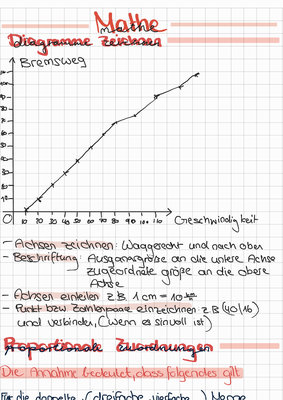 Mathe
Diagramme zeichnen
Bremsweg
10 20 30 40 50 60 70 80 90 100 110
0
Geschwindigkeit
- Achsen zeichnen: Waagerecht und nach oben
- Beschriftung: Ausgangsgröße an die untere Achse
zugeordnete größe an die obere
Achse
- Achsen einteilen z.B 1cm = 10
- Punkt bzw Zahlenpaare einzeichnen z.B (40/16)
und verbinden, (wenn es sinvoll ist)
Proportionale Zuordnungen
Die Annahme bedeutet, dass folgendes gilt
Für die doppelte, (dreifache, vierfache...) Menge